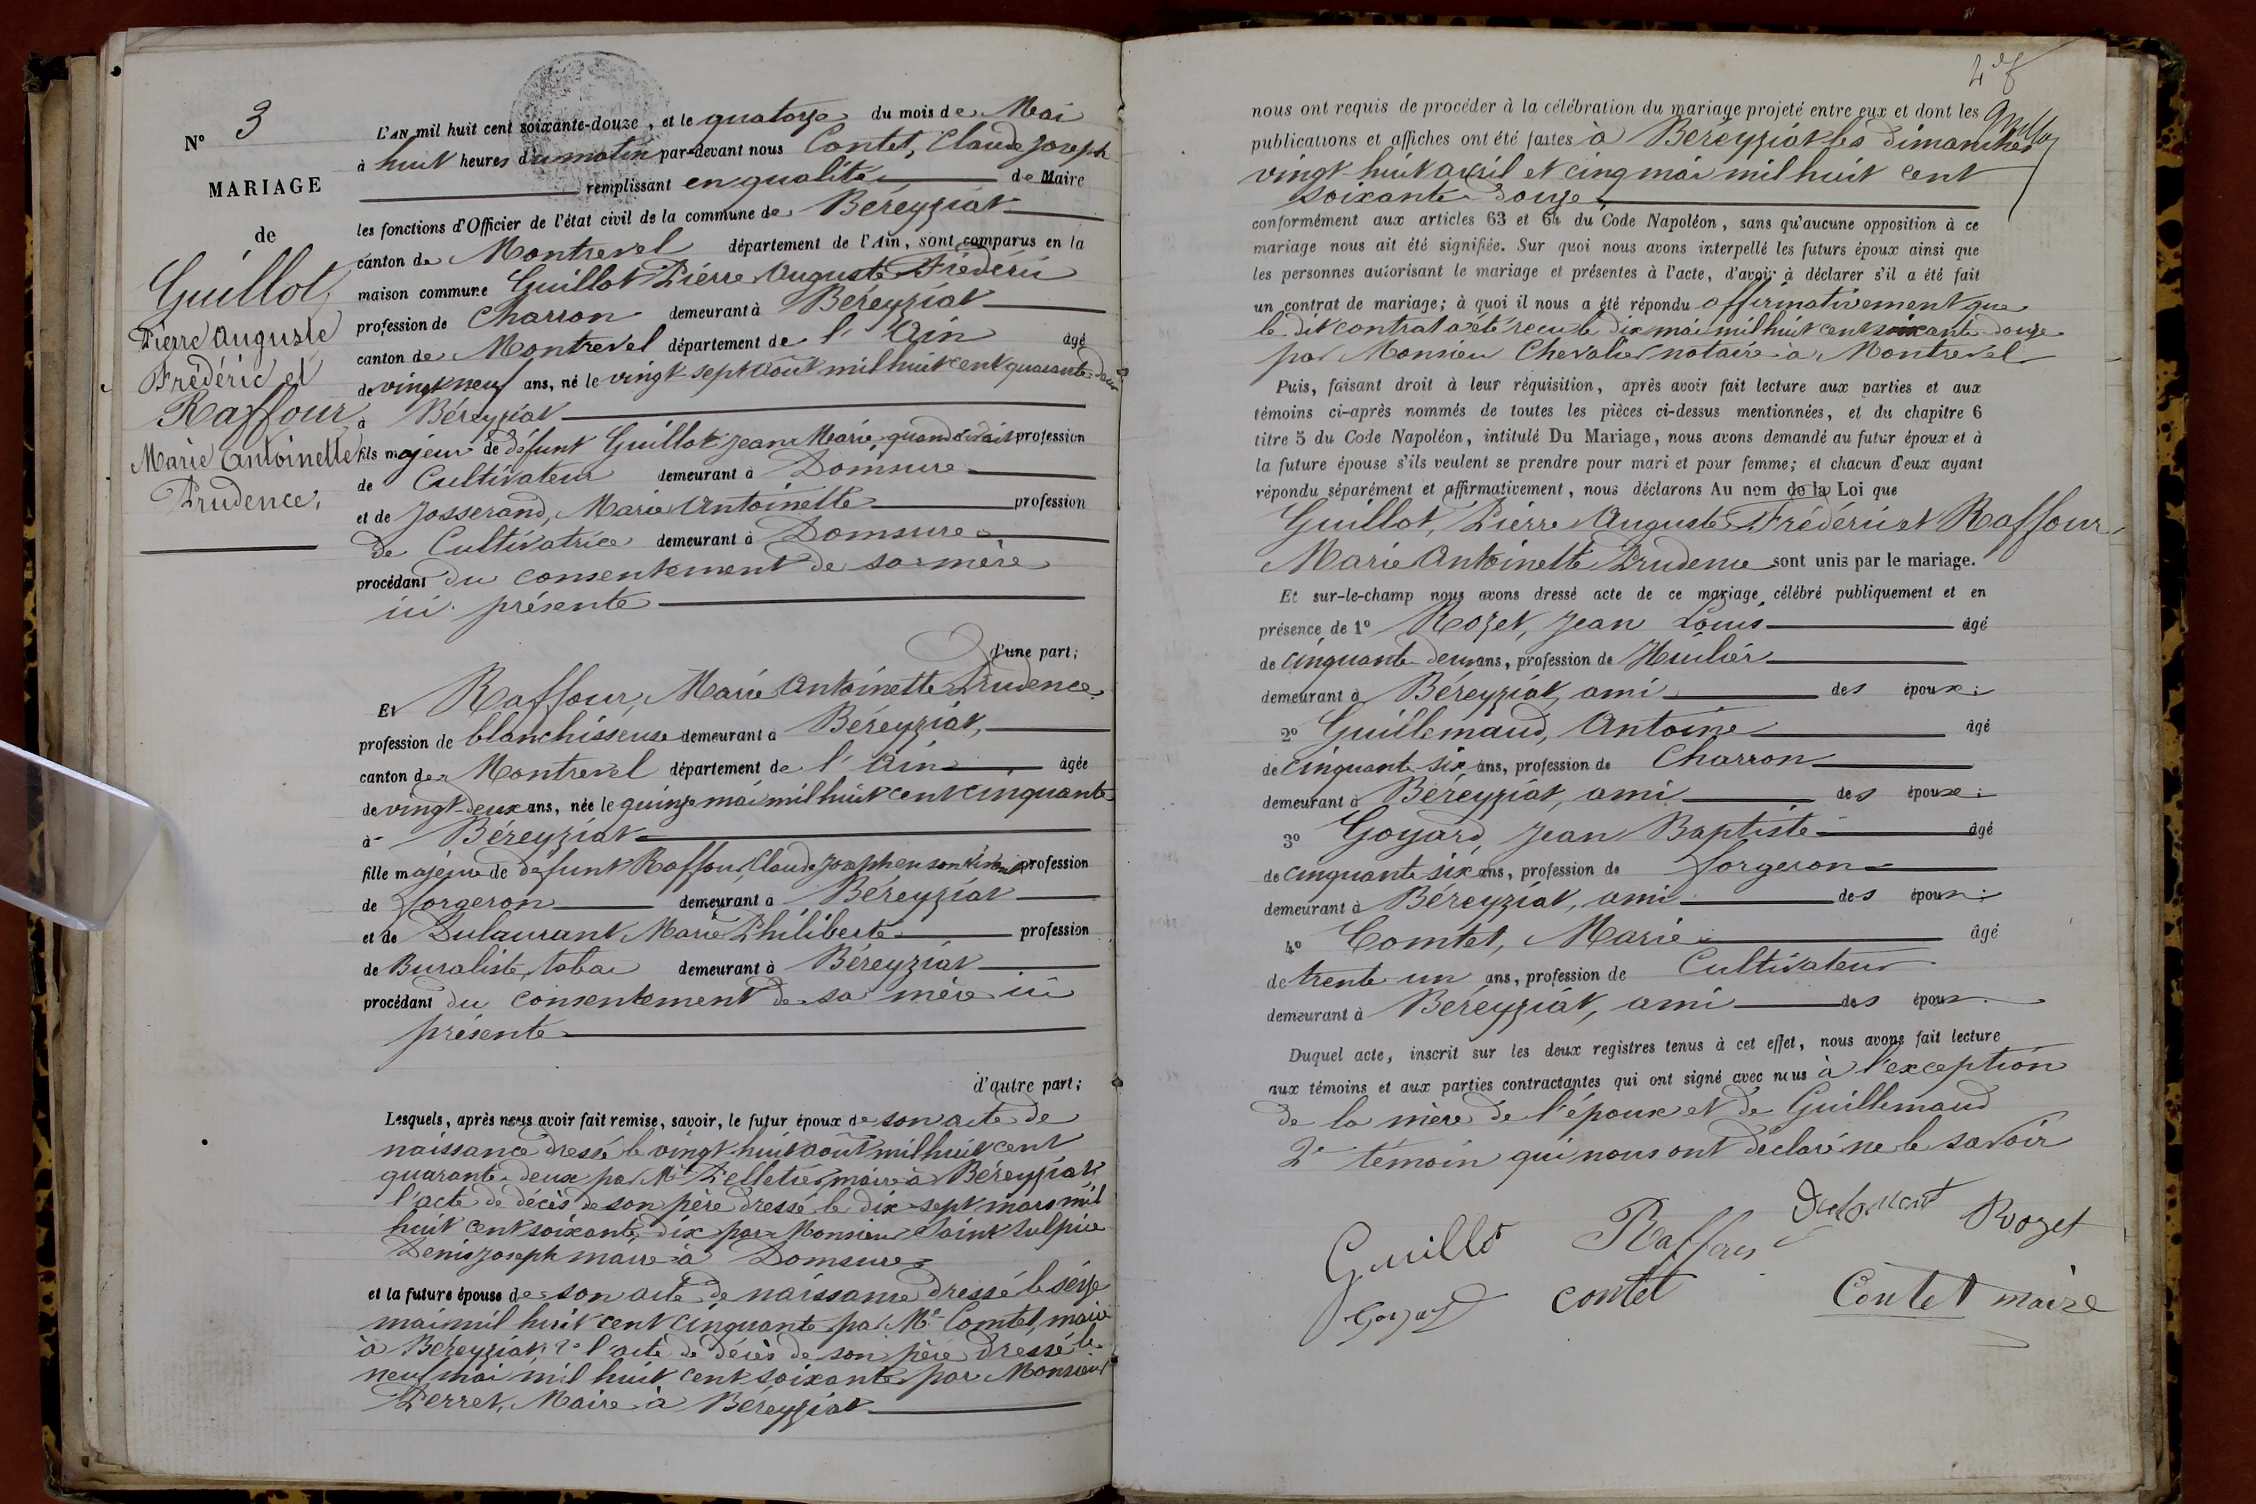 N° 3
MARIAGE
de
Guillot,
Pierre Auguste
Frédéric et
Raffour
Marie Antoinette
Prudence,
L'AN mil huit cent soixante-douze, et le quatorze du mois de Mai
à huit heures du matin par-devant nous Contet, Claude Joseph
remplissant en qualité de Maire
les fonctions d'Officier de l'état civil de la commune de Béreyziat
canton de Montrevel département de l'Ain, sont comparus en la
maison commune Guillot Pierre Auguste Frédéric
profession de Charron demeurant à Béreyziat
canton de Montrevel département de l'Ain âgé
de vingt neuf ans, né le vingt sept août mil huit cent quarante-deux
à Béreyziat
fils majeur de défunt Guillot Jean Marie, quand vivait profession
de Cultivateur demeurant à Domsure
et de Josserand, Marie Antoinette profession
de Cultivatrice demeurant à Domsure
procédant du consentement de sa mère
ici présente
d'une part;
Et Raffour, Marie Antoinette Prudence
profession de blanchisseuse demeurant à Béreyziat,
canton de Montrevel département de l'Ain âgée
de vingt-deux ans, née le quinze mai mil huit cent cinquante
à Béreyziat
fille majeure de défunt Raffour, Claude Joseph en son vivant profession
de forgeron demeurant à Béreyziat
et de Dulaurant Marie Philiberte profession
de Buraliste, tabac demeurant à Béreyziat
procédant du consentement de sa mère ici
présente
d'autre part;
Lesquels, après nous avoir fait remise, savoir, le futur époux de son acte de
naissance dressé le vingt-huit août mil huit cent
quarante-deux par Mr Pelletier, maire à Béreyziat
l'acte de décès de son père dressé le dix-sept mars mil
huit cent soixante dix par Monsieur Saint Sulpice
Denis Joseph maire à Domsure
et la future épouse de son acte de naissance dressé le seize
mai mil huit cent cinquante par Mr Comtet, maire
à Béreyziat 2° l'acte de décès de son père dressé le
neuf mai mil huit cent soixante par Monsieur
Perret, Maire à Béreyziat
nous ont requis de procéder à la célébration du mariage projeté entre eux et dont les
publications et affiches ont été faites à Béreyziat les dimanches
vingt-huit avril et cinq mai mil huit cent
soixante douze
conformément aux articles 63 et 64 du Code Napoléon, sans qu'aucune opposition à ce
mariage nous ait été signifiée. Sur quoi nous avons interpellé les futurs époux ainsi que
les personnes autorisant le mariage et présentes à l'acte, d'avoir à déclarer s'il a été fait
un contrat de mariage; à quoi il nous a été répondu affirmativement que
le dit contrat a été reçu le dix mai mil huit cent soixante-douze
par Monsieur Chevalier notaire à Montrevel
Puis, faisant droit à leur réquisition, après avoir fait lecture aux parties et aux
témoins ci-après nommés de toutes les pièces ci-dessus mentionnées, et du chapitre 6
titre 5 du Code Napoléon, intitulé Du Mariage, nous avons demandé au futur époux et à
la future épouse s'ils veulent se prendre pour mari et pour femme; et chacun d'eux ayant
répondu séparément et affirmativement, nous déclarons Au nom de la Loi que
Guillot, Pierre Auguste Frédéric et Raffour,
Marie Antoinette Prudence sont unis par le mariage.
Et sur-le-champ nous avons dressé acte de ce mariage célébré publiquement et en
présence de 1° Rozet, Jean Louis âgé
de cinquante deux ans, profession de Huilier
demeurant à Béreyziat, ami des époux;
2° Guillemaud, Antoine âgé
de cinquante six ans, profession de Charron
demeurant à Béreyziat, ami des époux;
3° Goyard, Jean Baptiste âgé
de cinquante six ans, profession de forgeron
demeurant à Béreyziat, ami des époux;
4° Comtet, Marie âgé
de trente un ans, profession de Cultivateur
demeurant à Béreyziat, ami des époux
Duquel acte, inscrit sur les deux registres tenus à cet effet, nous avons fait lecture
aux témoins et aux parties contractantes qui ont signé avec nous à l'exception
de la mère de l'époux et de Guillemaud
2e témoin qui nous ont déclaré ne le savoir
Guillot Raffour Rozet
Goyard contet Contet maire